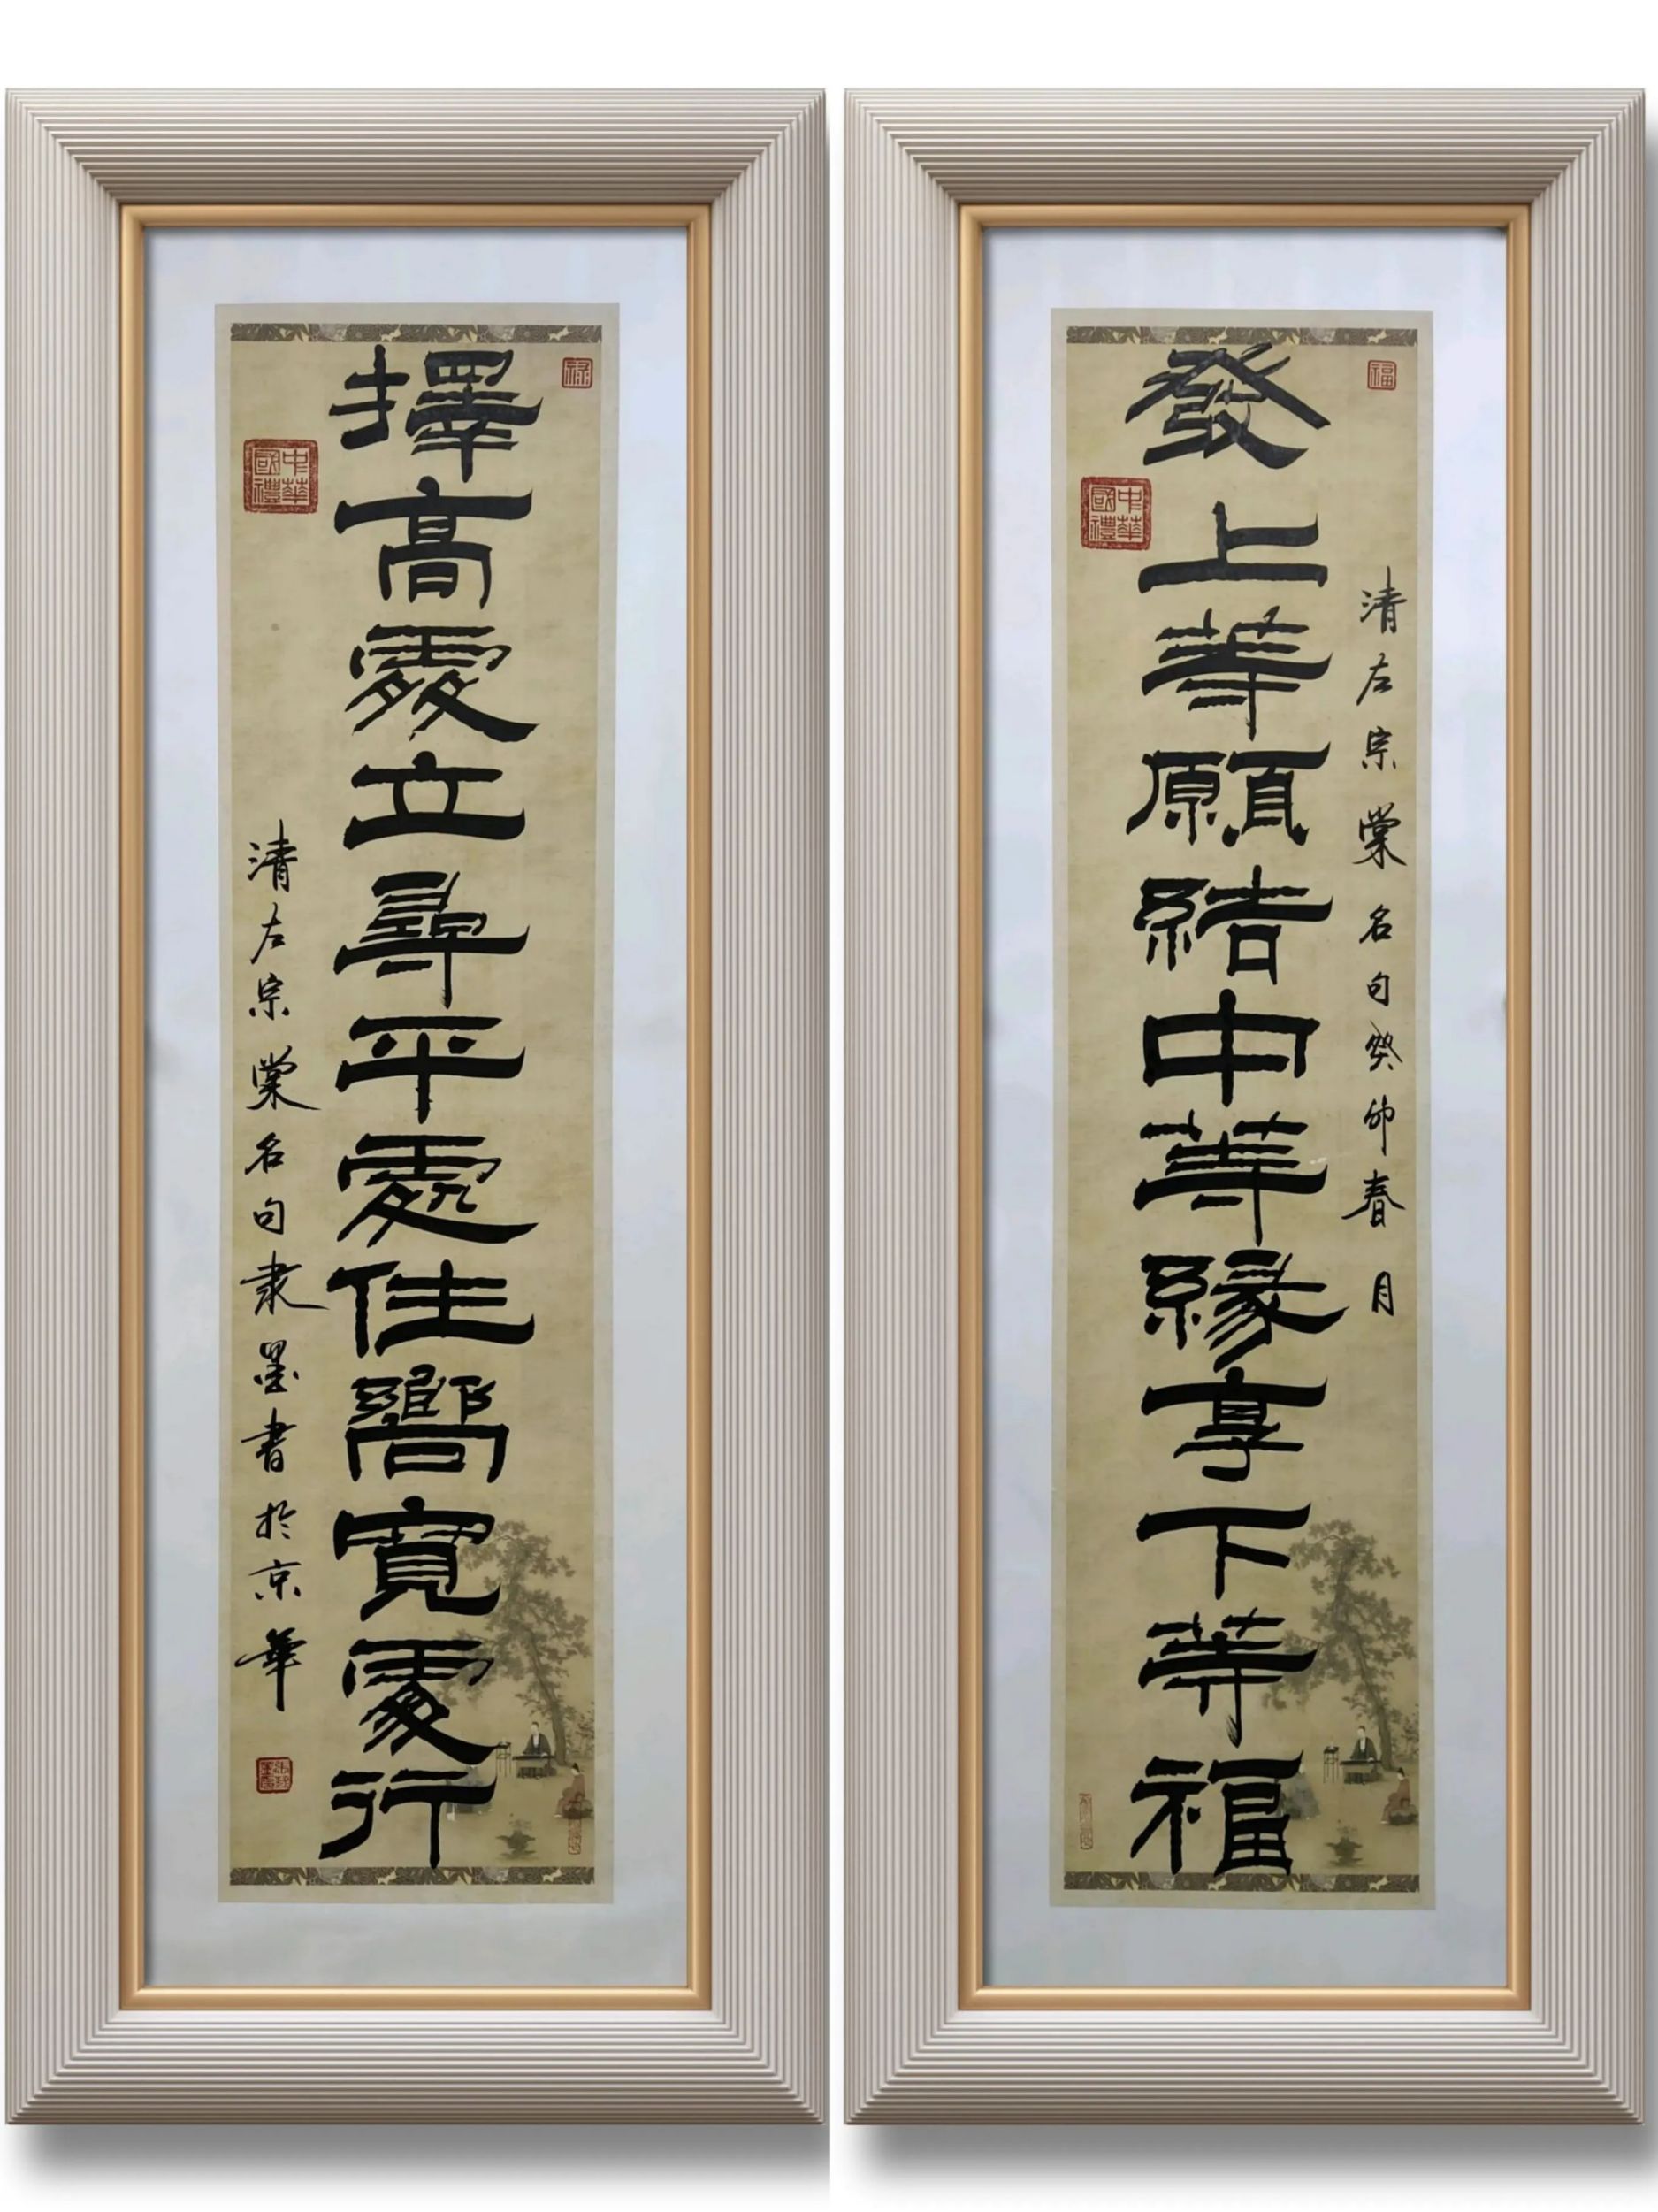 福
清左宗棠名句癸卯春月
發上等願結中等緣享下等福
中華
國禮
禄
擇高處立尋平處住嚮寬處行
中華
國禮
清左宗棠名句隶墨書於京華